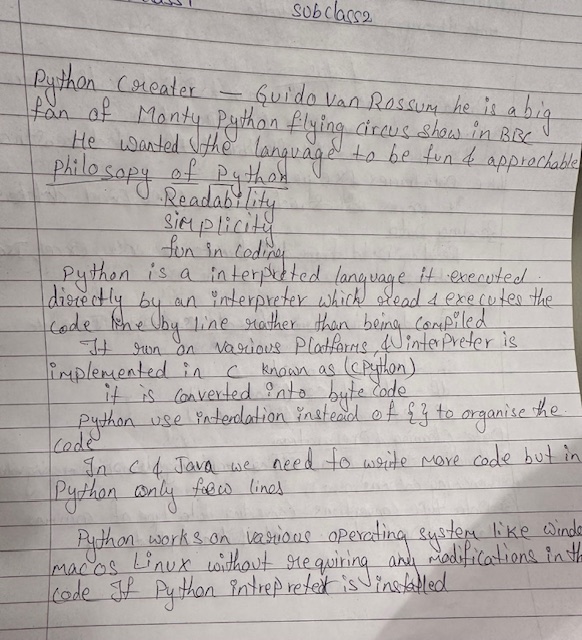 subclass2
Python Creater — Guido Van Rossum he is a big
fan of Monty Python flying circus show in BBC
He wanted the language to be fun & approchable
Philosopy of Python
Readability
simplicity
fun in coding
Python is a interpreted language it executed
directly by an interpreter which read & executes the
code line by line rather than being compiled
It run on various Platforms & interpreter is
implemented in C known as (cPython)
it is converted into byte code
Python use intendation instead of {} to organise the
code
In C & Java we need to write more code but in
Python only few lines
Python works on various operating system like Windo
macos Linux without requiring any modifications in th
code If Python intrepreted is installed